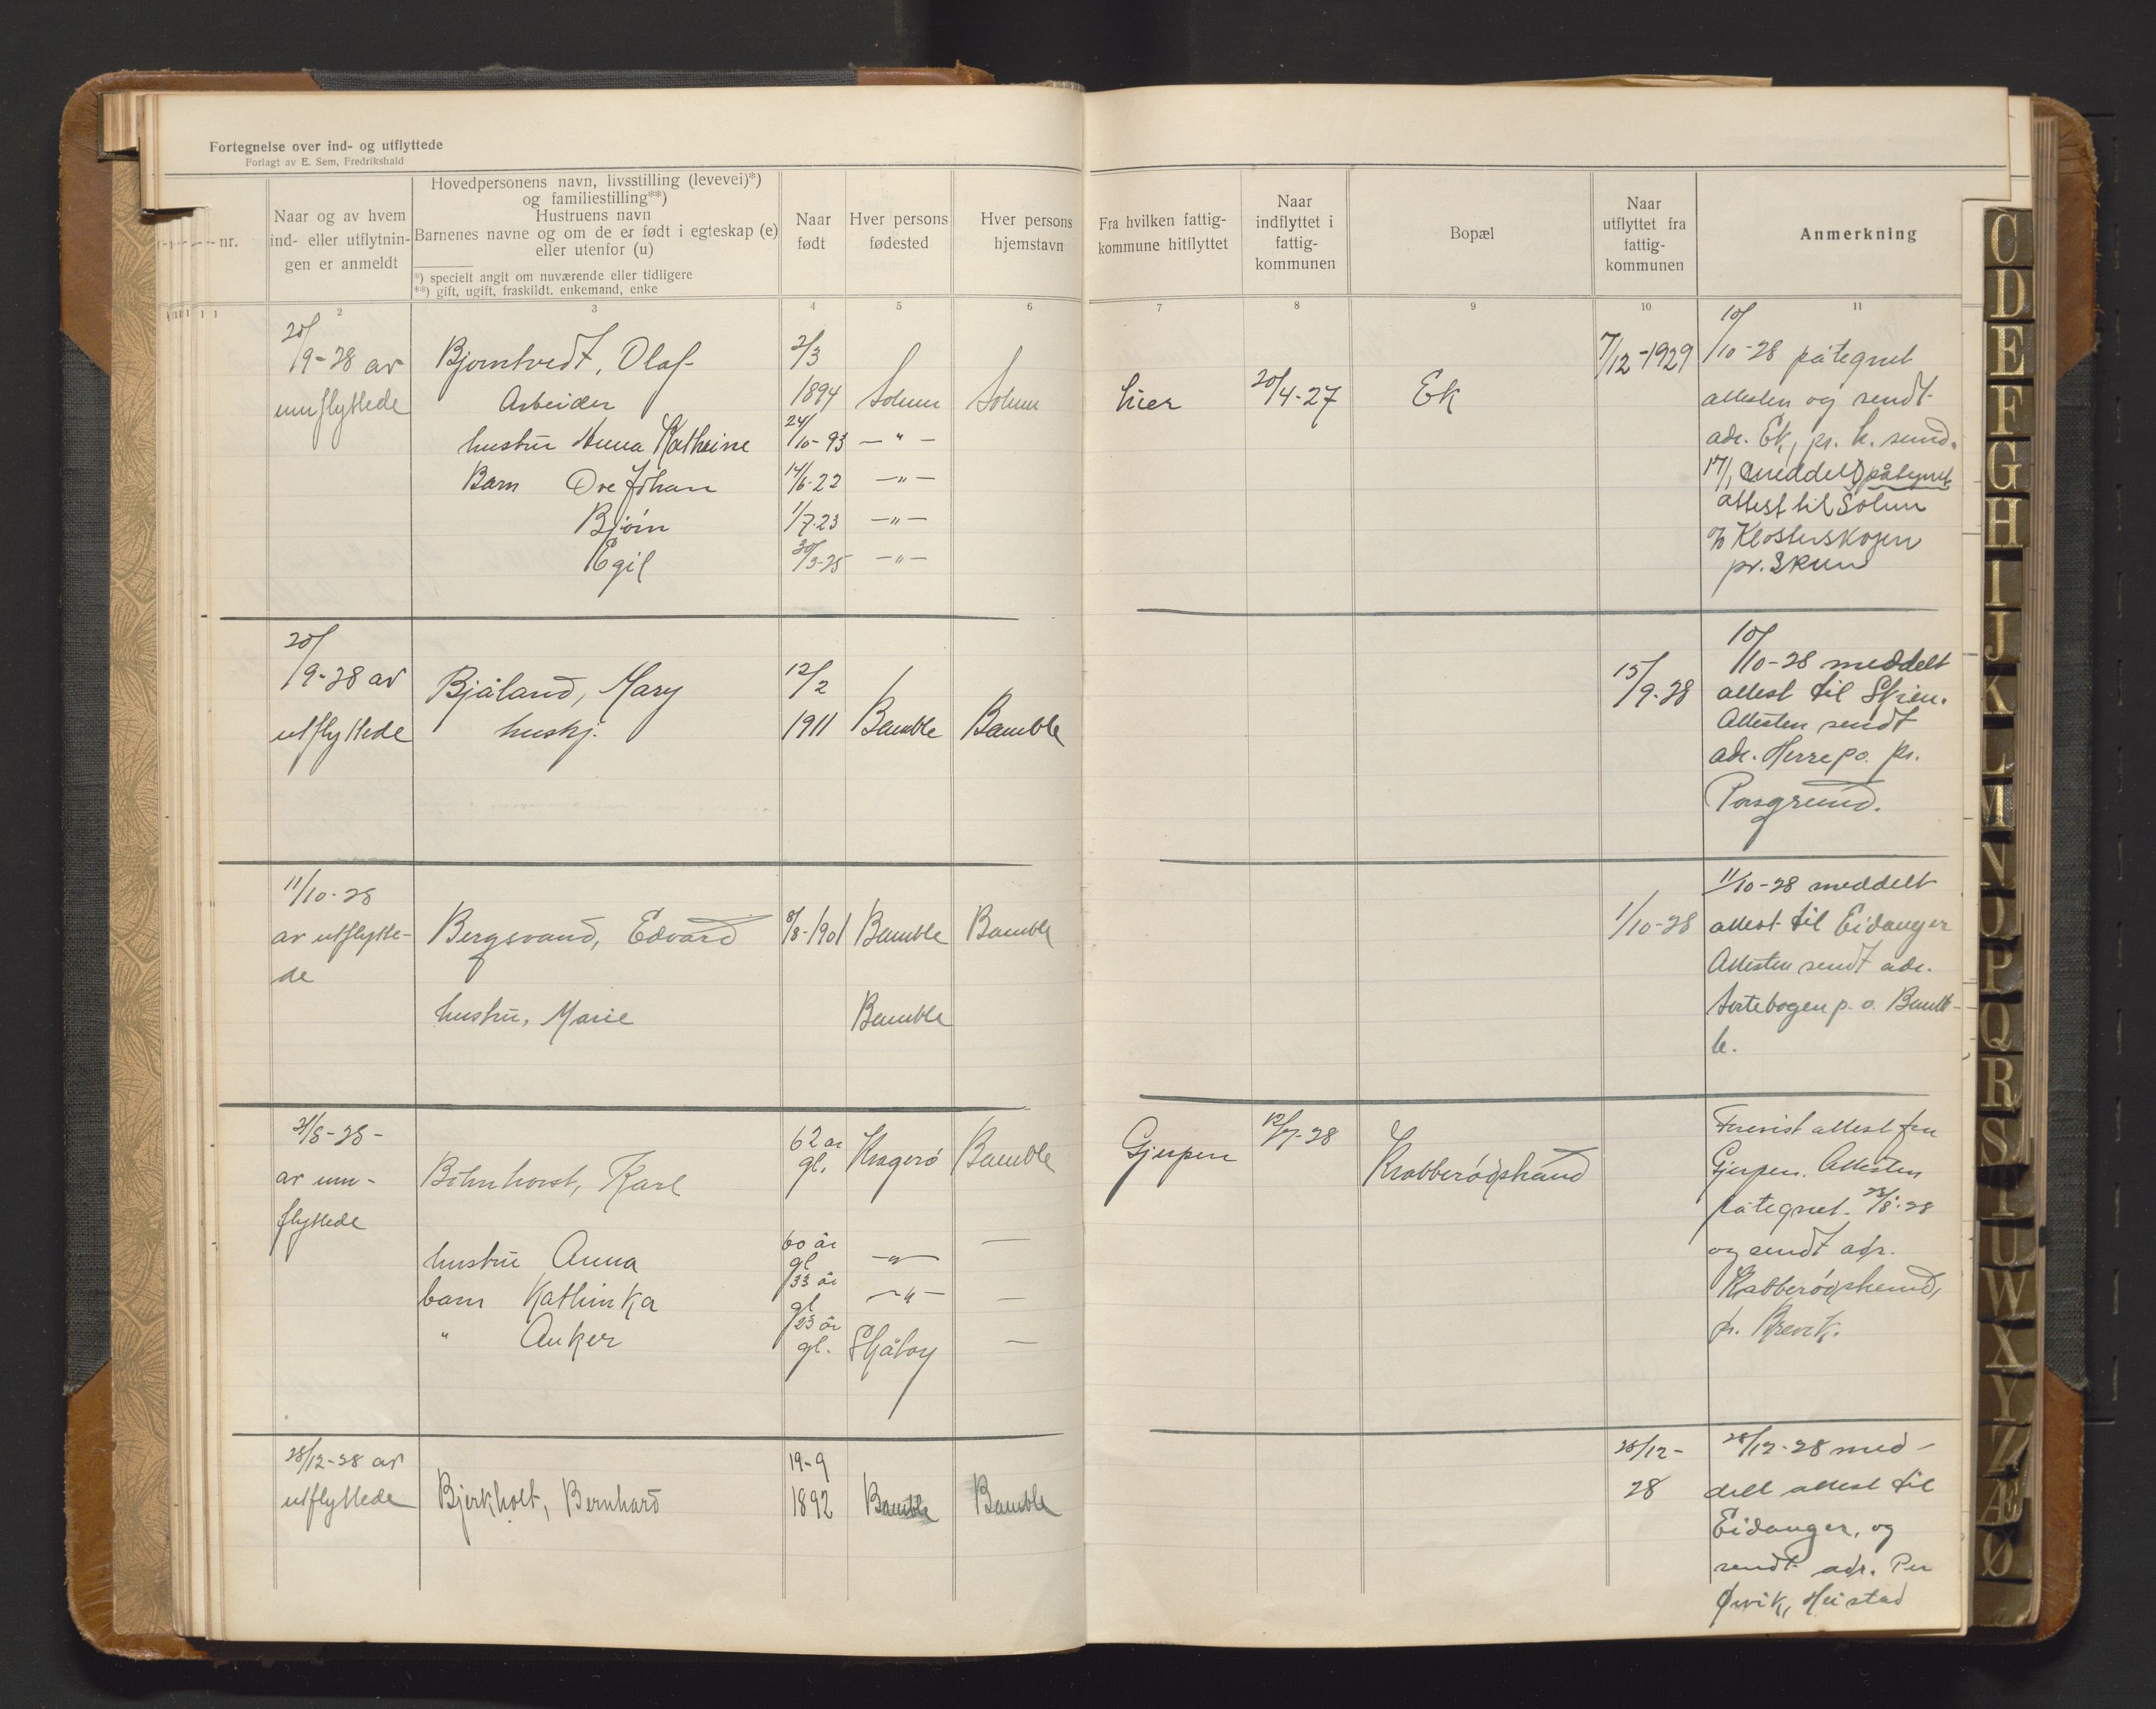 Fortegnelse over ind- og utflyttede
Forlagt av E. Sem, Fredrikshald
nr.
Naar og av hvem
ind- eller utflytnin-
gen er anmeldt
Hovedpersonens navn, livsstilling (levevei)*)
og familiestilling**)
Hustruens navn
Barnenes navne og om de er født i egteskap (e)
eller utenfor (u)
*) specielt angit om nuværende eller tidligere
**) gift, ugift, fraskildt. enkemand, enke
Naar
født
Hver persons
fødested
Hver persons
hjemstavn
Fra hvilken fattig-
kommune hitflyttet
Naar
indflyttet i
fattig-
kommunen
Bopæl
Naar
utflyttet fra
fattig-
kommunen
Anmerkning
1 2 3 4 5 6 7 8 9 10 11
20/9-28 av
innflyttede
Bjorntvedt, Olaf
Arbeider
2/3
1894 Solum Solum
Lier 20/4-27 Ek
7/12-1929
hustru Anna Kathrine 24/10-93 — " —
Barn Ove Johan 14/6-22 — " —
Bjørn 1/7-23 — " —
Egil 30/3-25 — " —
10/10-28 påtegnet
attesten og sendt
adr. Ek, pr. L. sund.
17/1 meddelt påtegnet
attest til Solum
% Klosterskogen
pr. Skien
20/9-28 av
utflyttede
Bjåland, Mary
huskj.
12/2
1911 Bamble Bamble
15/9-28
10/10-28 meddelt
attest til Skien.
Attesten sendt
adr. Herre po. pr.
Porsgrund.
11/10-28
av utflytte-
de
Bergsvand, Edvard 8/8-1901 Bamble Bamble
hustru, Marie Bamble
1/10-28
11/10-28 meddelt
attest til Eidanger
Attesten sendt adr.
Surtebogen p.o. Bamb-
le.
21/8-28-
av inn-
flyttede
Böhnhorst, Karl 62 år
gl. Kragerø Bamble
Gjerpen 12/7-28 Krabberødstrand
hustru Anna 60 år
gl — " — —
barn Kathinka 33 år
gl — " — —
" Anker 23 år
gl. Skåtøy —
Forevist attest fra
Gjerpen. Attesten
påtegnet 23/8-28
og sendt adr.
Krabberødstrand,
pr. Brevik.
28/12-28 av
utflyttede
Bjerkholt, Bernhard
19-9
1892 Bamble Bamble
28/12-
28
28/12-28 med-
delt attest til
Eidanger, og
sendt adr. Per
Ørvik, Heistad
C
D
E
F
G
H
I
J
K
L
M
N
O
P
Q
R
S
T
U
W
X
Y
Z
Æ
Ø